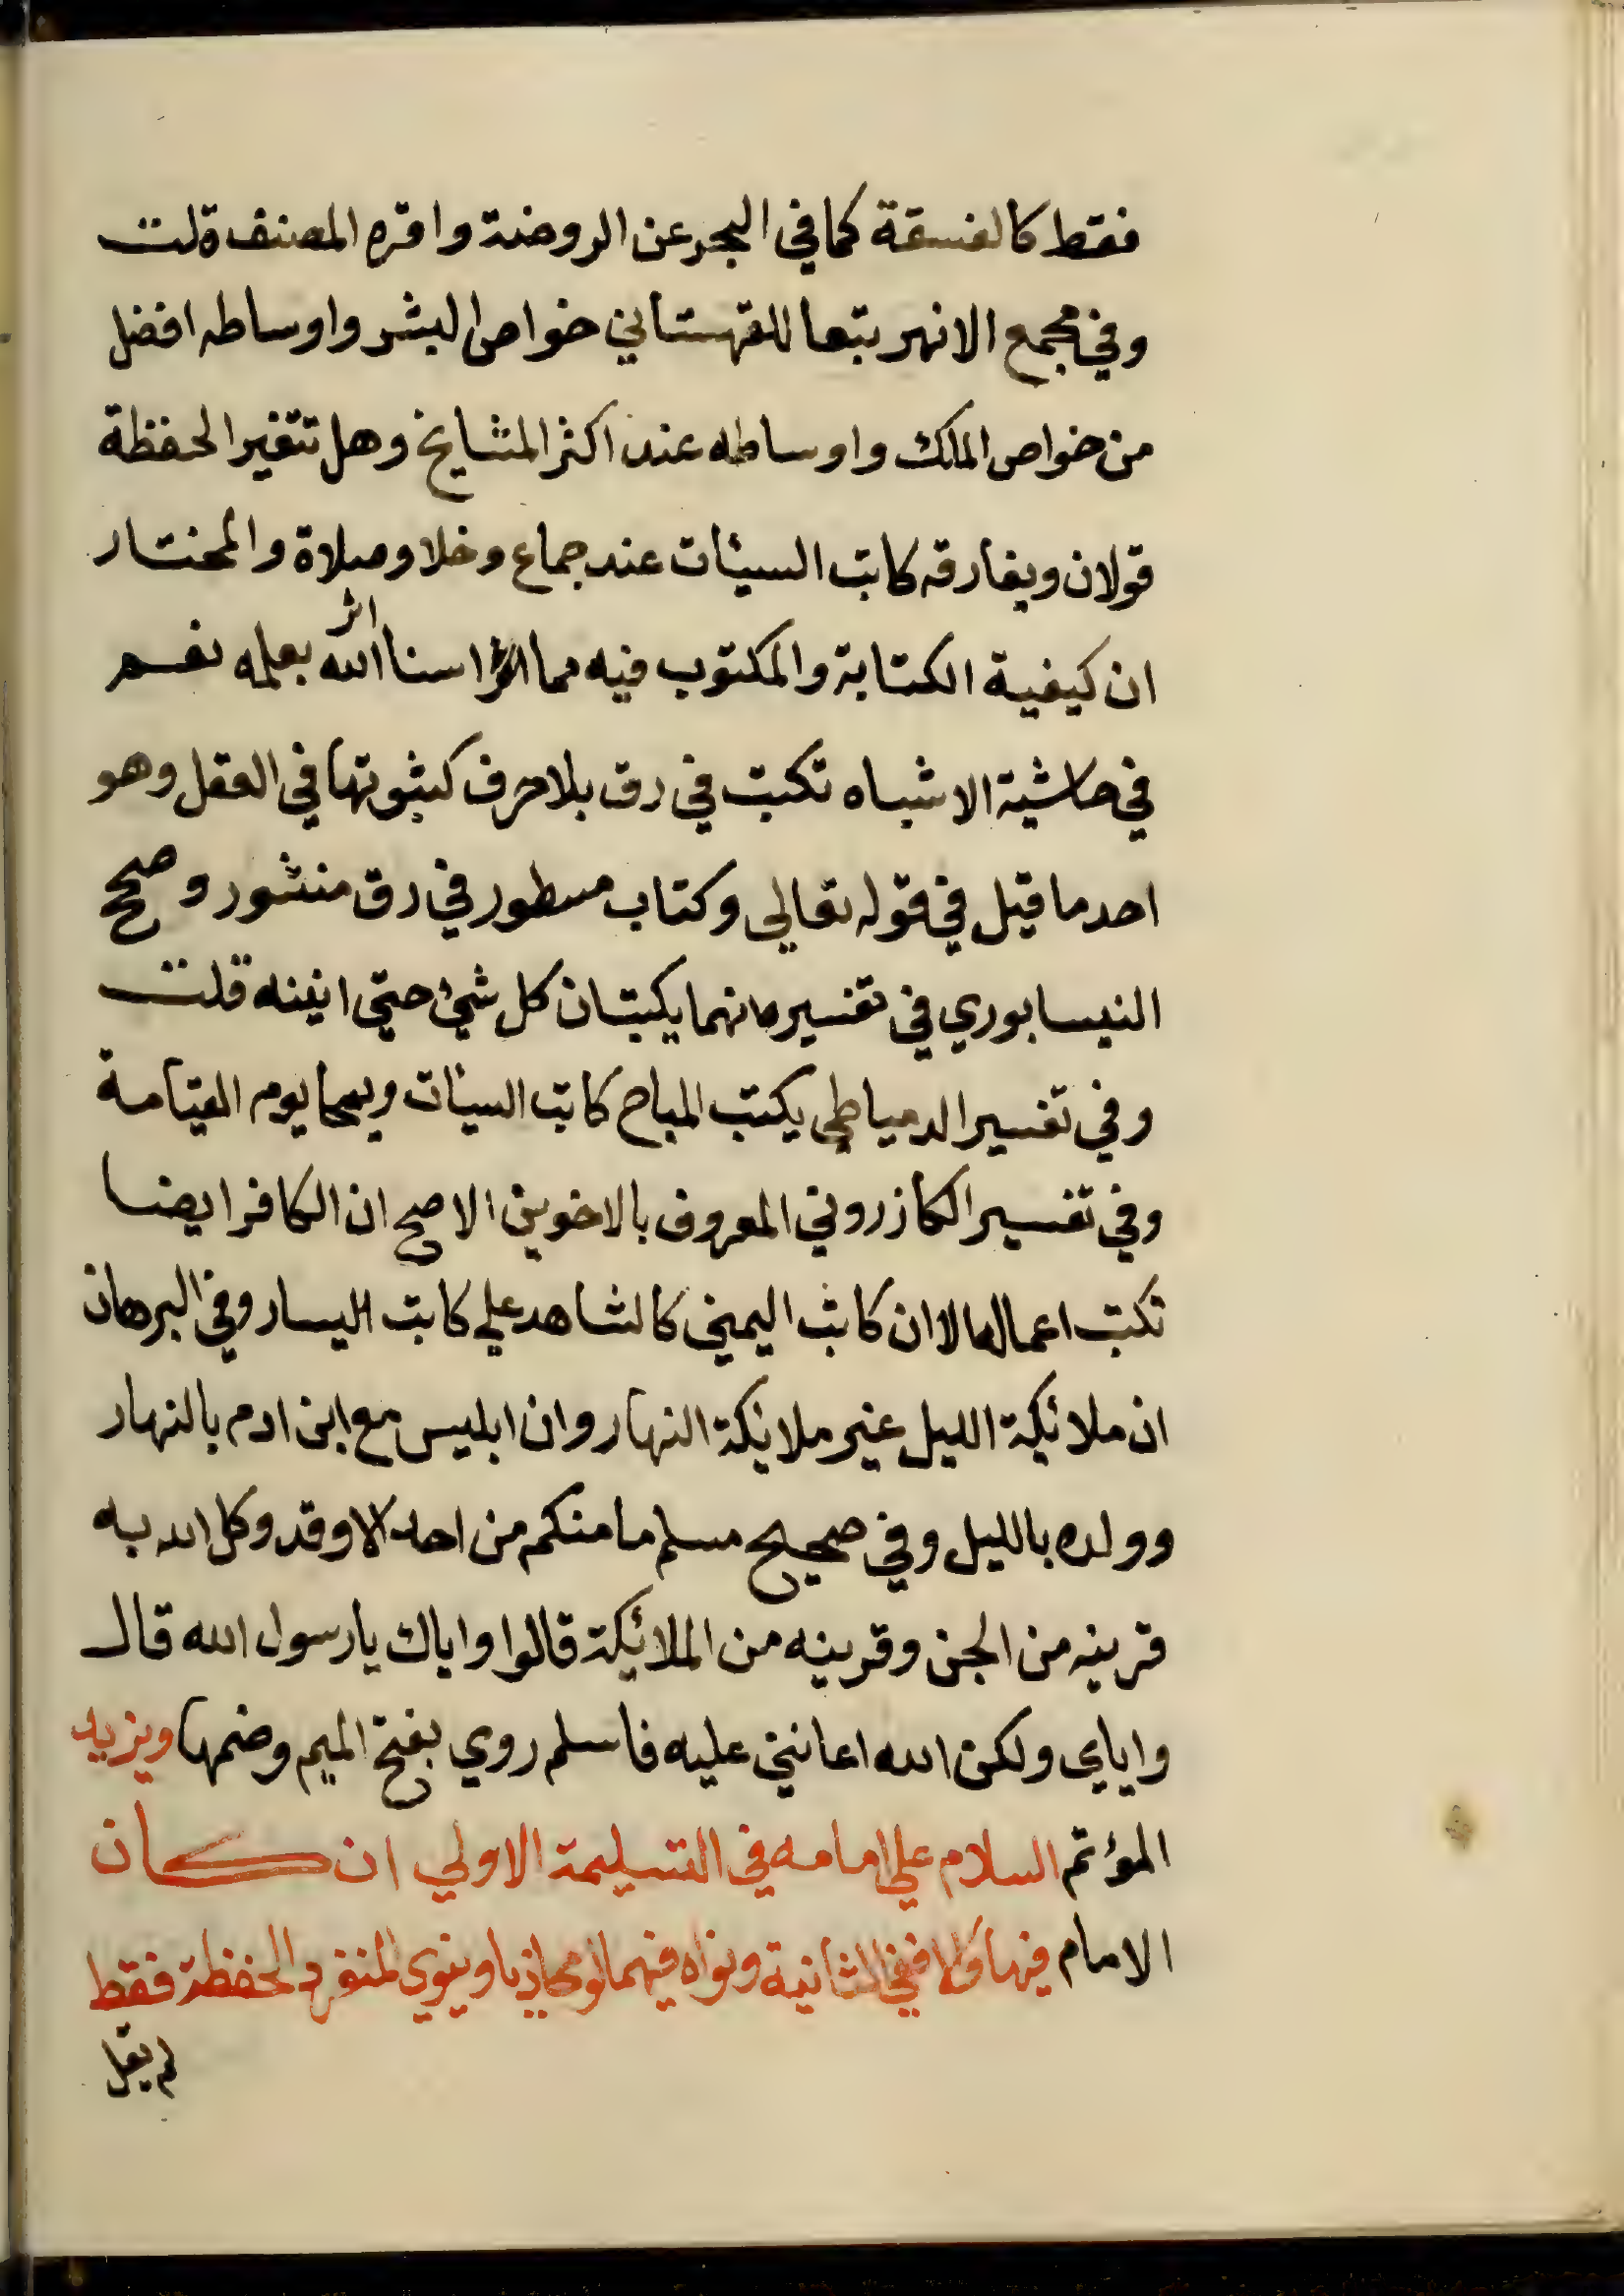 فقط كالفسقة كما في البحر عن الروضة واقره المصنف قلت
وفي مجمع الانهر تبعا للقهستاني خواص البشر واوساطه افضل
من خواص الملك واوساطه عند اكثر المشايخ وهل تتغير الحفظة
قولان ويفارقه كاتب السيئات عند جماع وخلا وصلاة والمختار
ان كيفية الكتابة والمكتوب فيه مما استاثر الله بعلمه نعم
في حاشية الاشباه تكتب في رق بلا حرف كثبوتها في العقل وهو
احد ما قيل في قوله تعالى وكتاب مسطور في رق منشور وصحح
النيسابوري في تفسيره انهما يكتبان كل شيء حتى انينه قلت
وفي تفسير الدمياطي يكتب المباح كاتب السيئات ويمحا يوم القيامة
وفي تفسير الكازروني المعروف بالاخوين الاصح ان الكافر ايضا
تكتب اعماله الا ان كاتب اليمين كالشاهد علي كاتب اليسار وفي البرهان
ان ملائكة الليل غير ملائكة النهار وان ابليس مع ابن ادم بالنهار
وولده بالليل وفي صحيح مسلم ما منكم من احد الا وقد وكل الله به
قرينه من الجن وقرينه من الملائكة قالوا واياك يا رسول الله قال
واياي ولكن الله اعانني عليه فاسلم روي بفتح الميم وضمها ويزيد
المؤتم السلام علي امامه في التسليمة الاولي ان كان
الامام فيها والا ففي الثانية ونواه فيهما لو محاذيا وينوي المنفرد الحفظة فقط
لم يقل